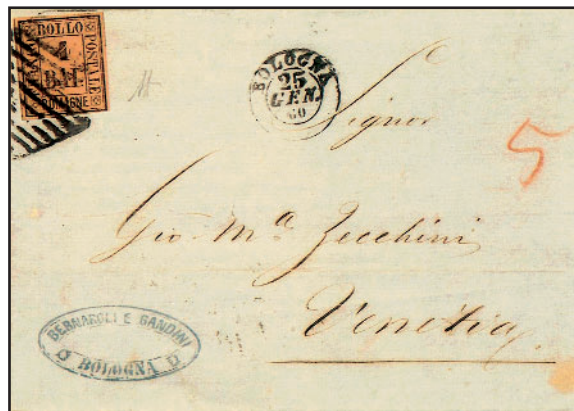 BOLLO
POSTALE
4
BAI.
ROMAGNE
BOLOGNA
25
GEN.
60
Signor
5
Gio Mª Zecchini
Venezia
BERNAROLI E GANDINI
BOLOGNA